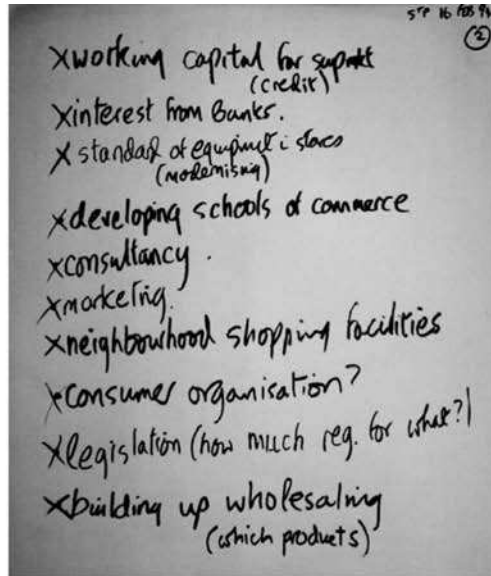 STP 16 FEB 94
2
xworking capital for
(credit)
xinterest from Banks.
x standard of equipment i stores
(modernising)
xdeveloping schools of commerce
xconsultancy.
xmarketing.
xneighbourhood shopping facilities
xconsumer organisation?
xlegislation (how much reg. for what?)
xbuilding up wholesaling
(which products)